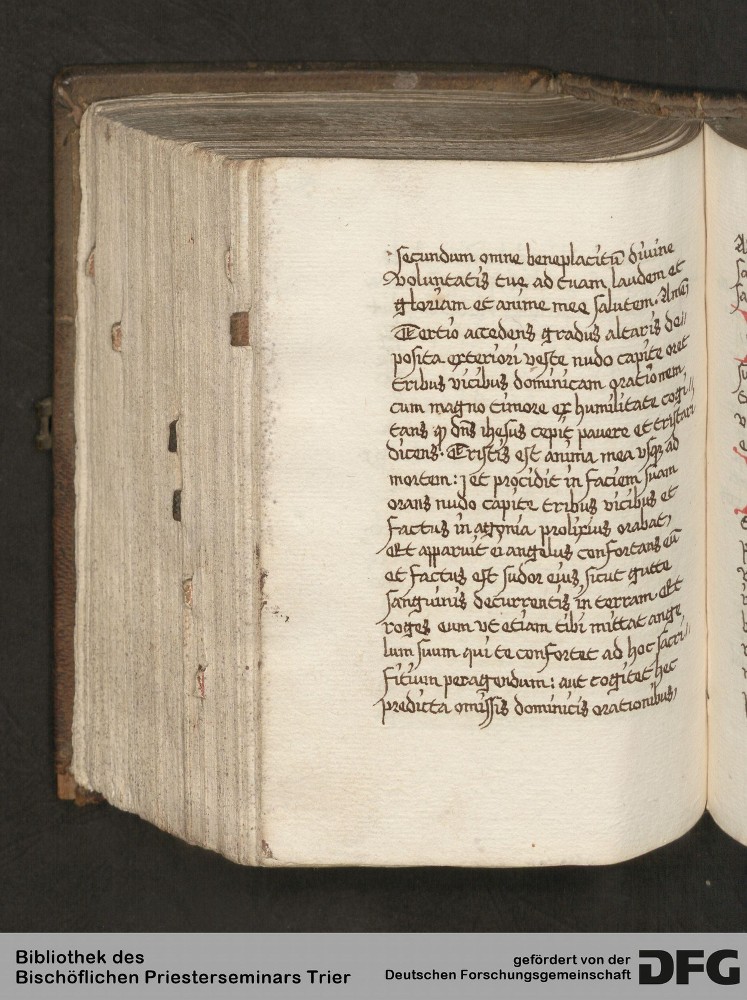 secundum omne beneplacitū divine
voluntatis tue ad tuam laudem et
gloriam et anime mee salutem. Amē
Tertio accedens gradus altaris de//
posita exteriori veste nudo capite oret
tribus vicibus dominicam orationem
cum magno timore et humilitate cogi//
tans ꝙ dn̄s ihesus cepit pavere et tristari
dicens. Tristis est anima mea vsqꝫ ad
mortem: et procidit in faciem suam
orans nudo capite tribus vicibus et
factus in agonia prolixius orabat,
Et apparuit ei angelus confortans eū
et factus est sudor eius sicut gutte
sanguinis decurrentis in terram Et
roges eum vt etiam tibi mittat ange
lum suum qui te confortet ad hoc sacri//
fitium peragendum: aut cogitet hec
predicta omissis dominicis orationibus,
Bibliothek des
Bischöflichen Priesterseminars Trier
gefördert von der
Deutschen Forschungsgemeinschaft
DFG